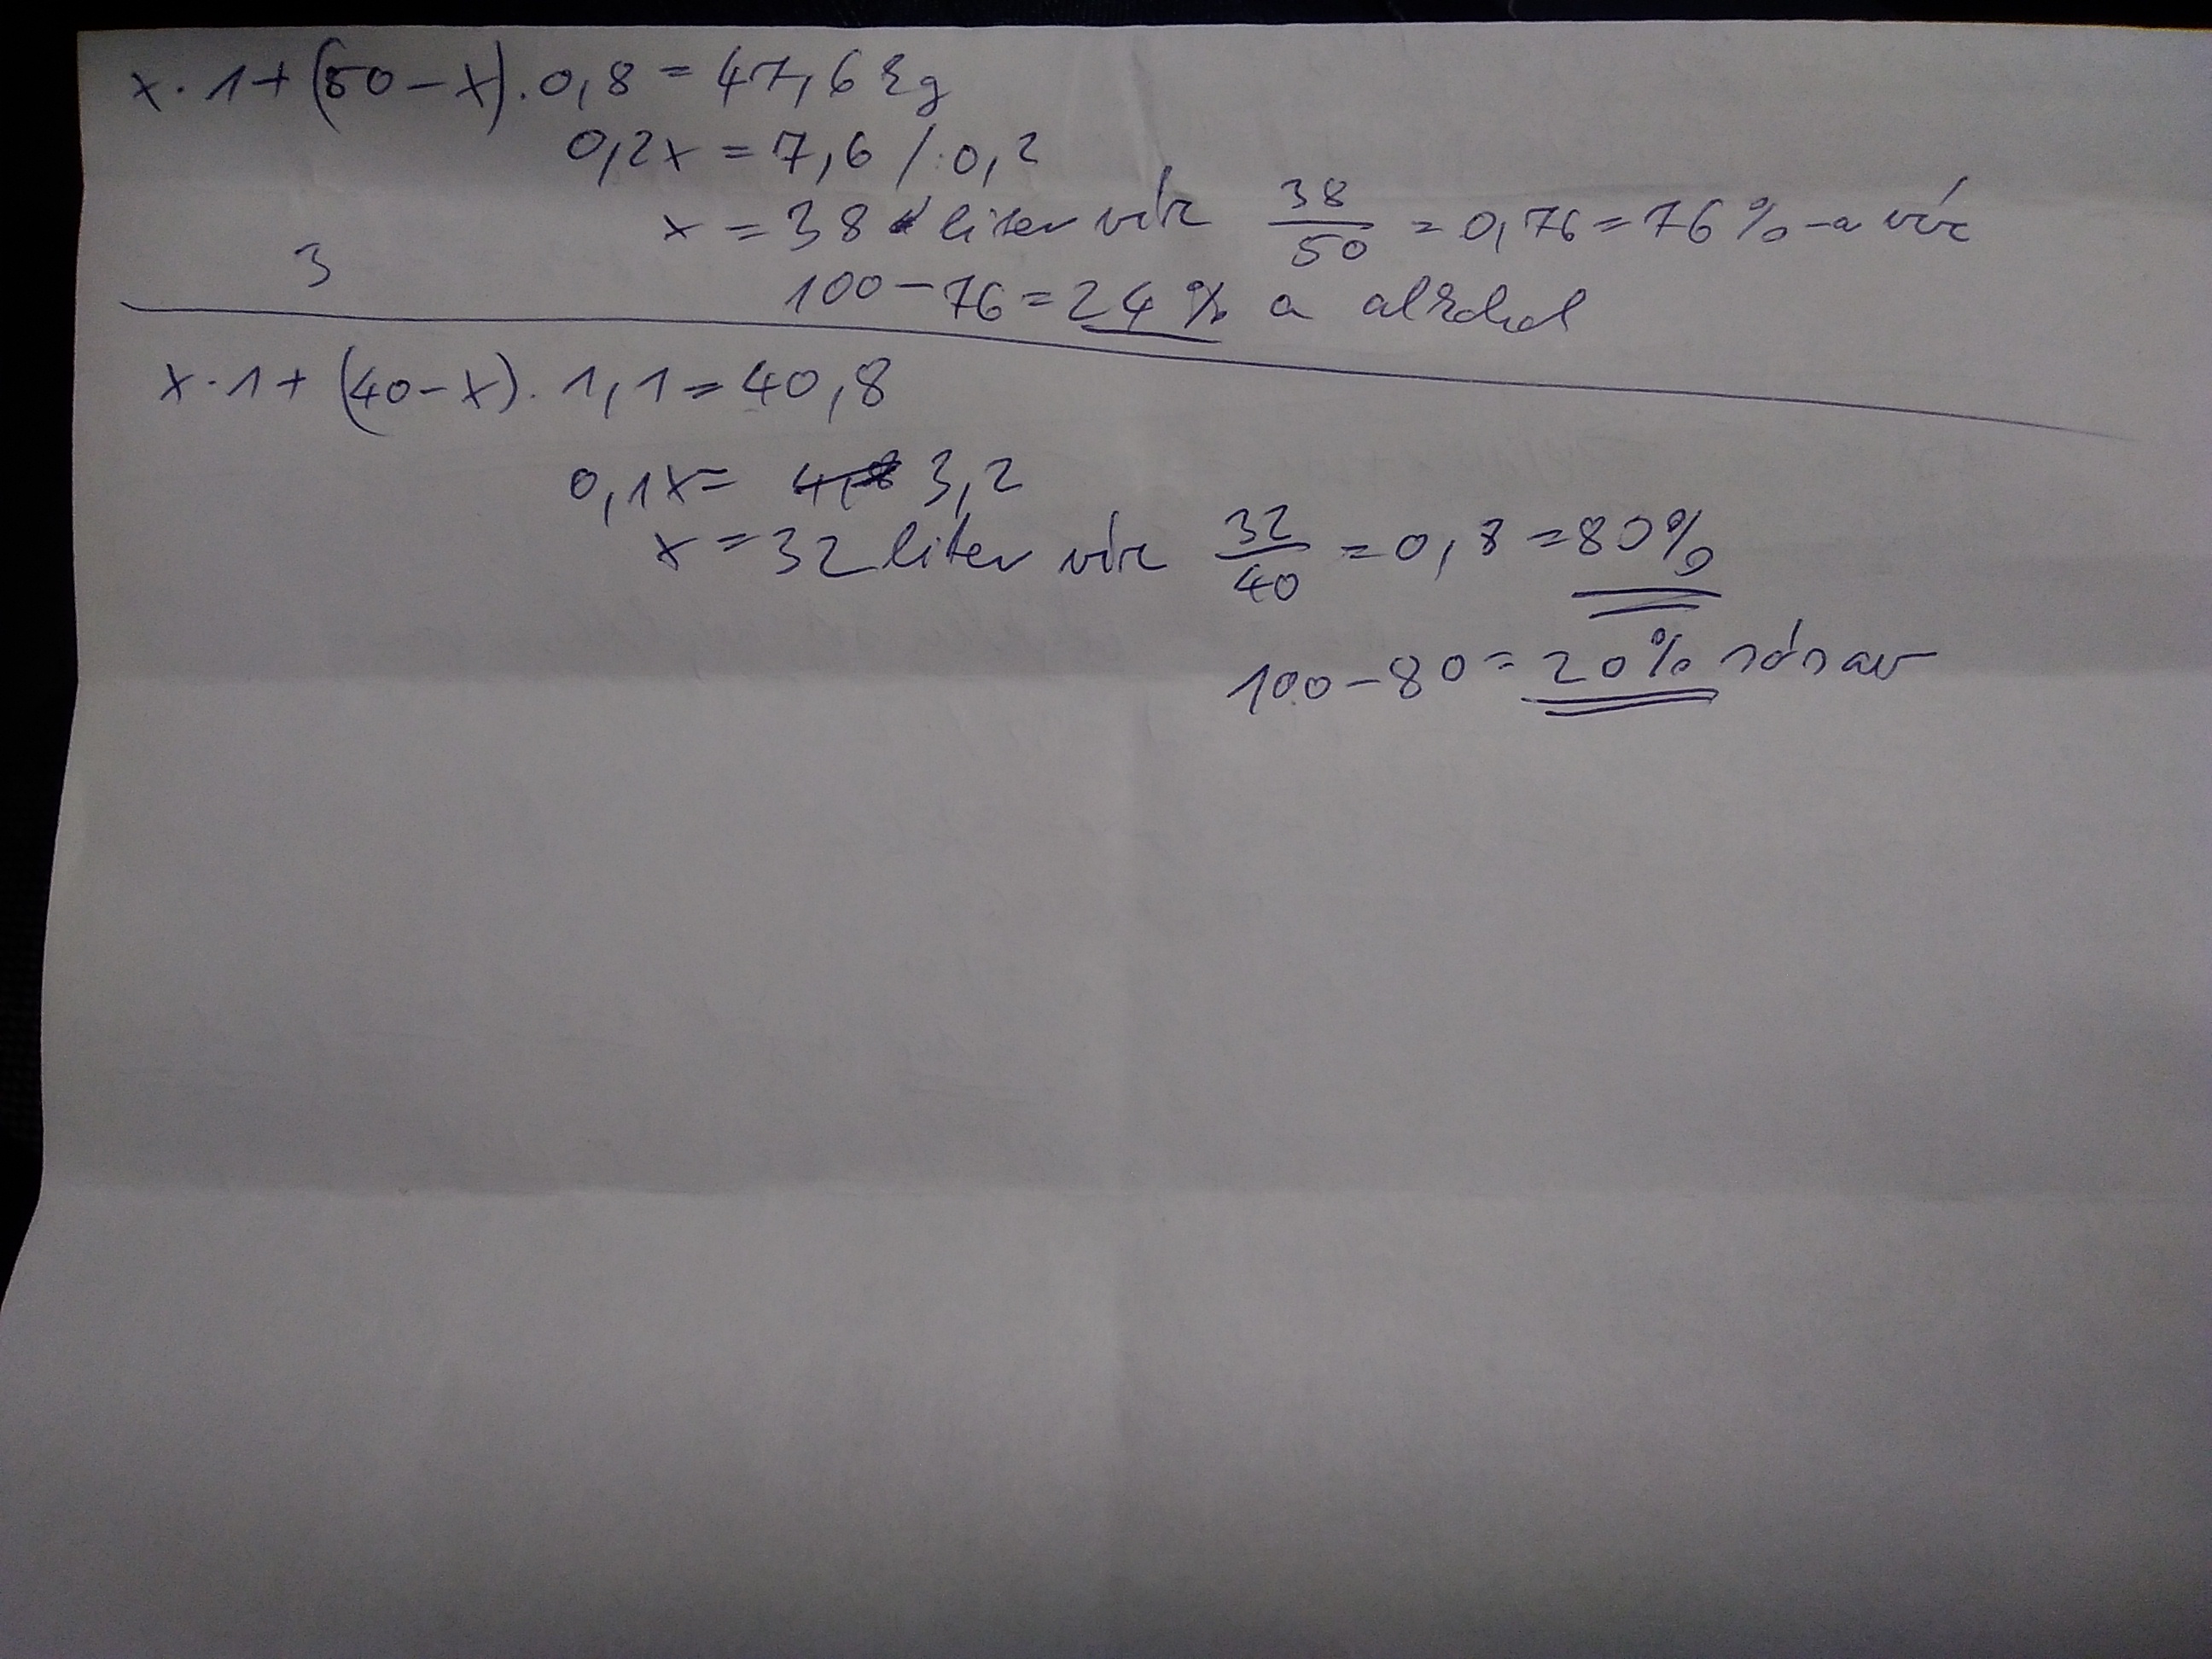 x · 1 + (50 - x) · 0,8 = 47,6 kg
0,2x = 7,6 / : 0,2
x = 38 liter víz 38/50 = 0,76 = 76%-a víz
3
100 - 76 = 24% a alkohol
x · 1 + (40 - x) · 1,1 = 40,8
0,1x = 4,8 3,2
x = 32 liter víz 32/40 = 0,8 = 80%
100 - 80 = 20% sósav